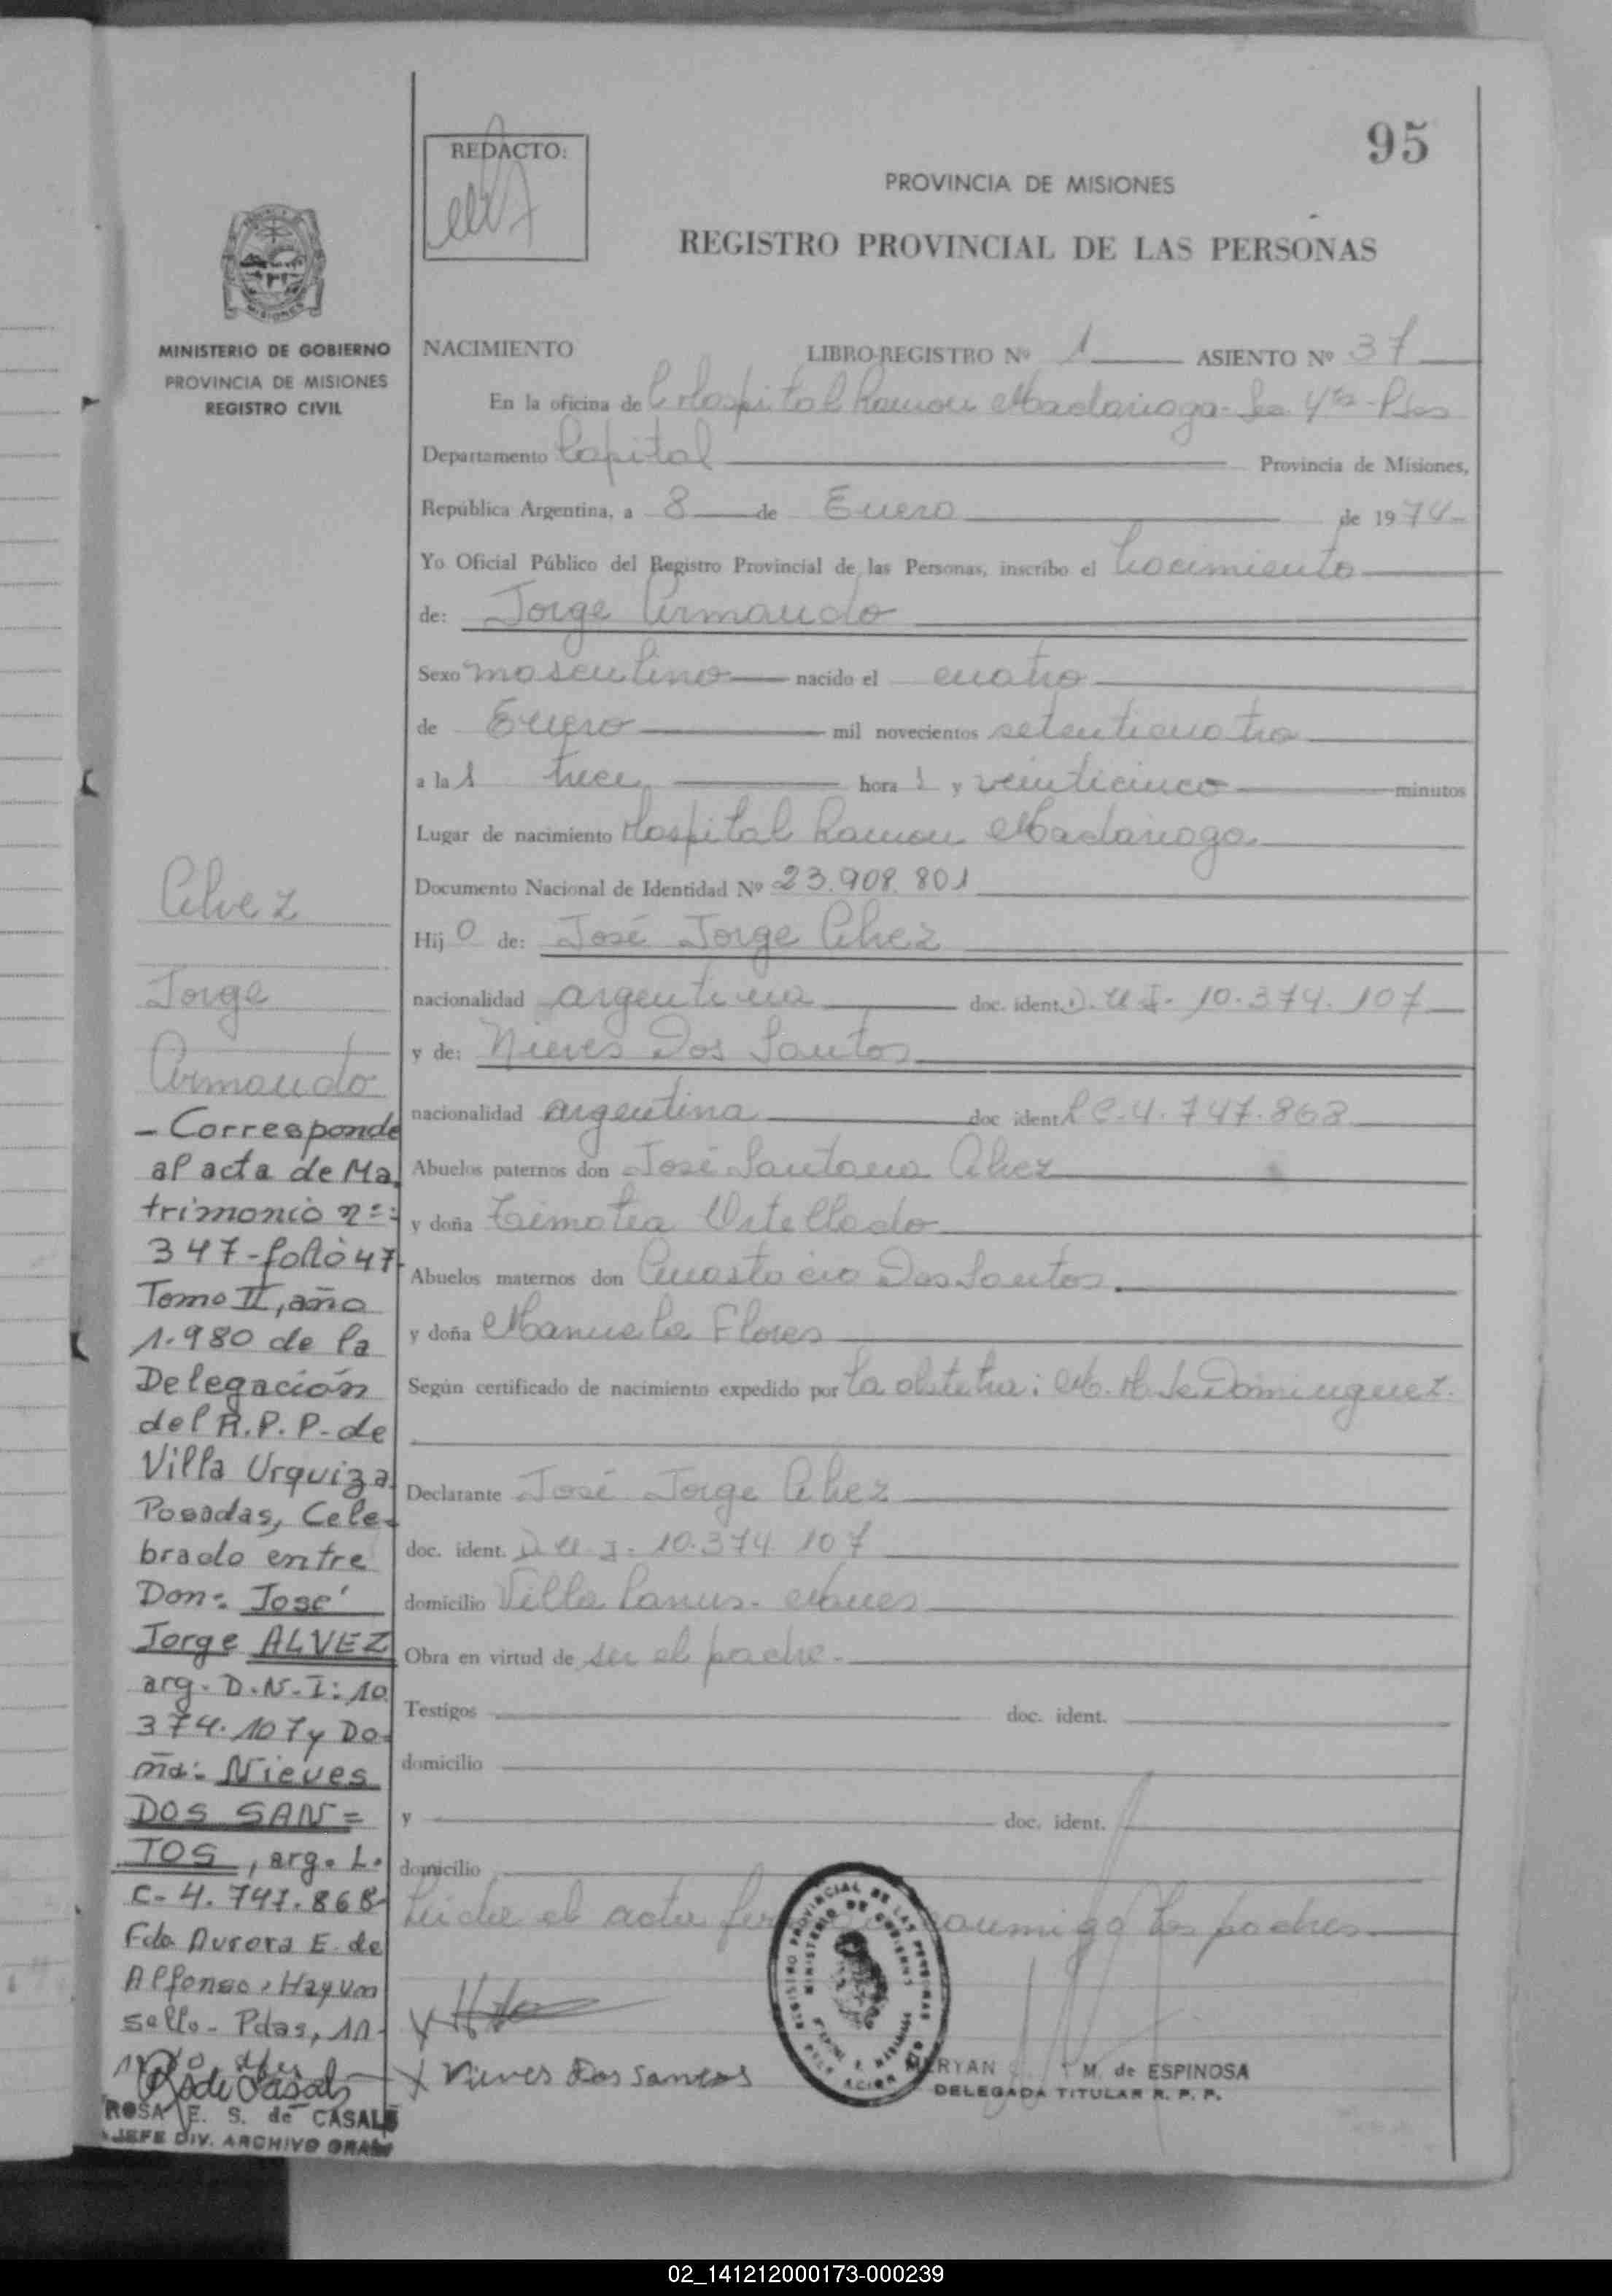 95
REDACTO:
PROVINCIA DE MISIONES
REGISTRO PROVINCIAL DE LAS PERSONAS
MINISTERIO DE GOBIERNO
PROVINCIA DE MISIONES
REGISTRO CIVIL
NACIMIENTO LIBRO-REGISTRO Nº 1 ASIENTO Nº 37
En la oficina de Hospital Ramon Madariaga
Departamento Capital Provincia de Misiones,
República Argentina, a 8 de Enero de 1974
Yo Oficial Público del Registro Provincial de las Personas, inscribo el Nacimiento
de: Jorge Armando
Sexo masculino nacido el cuatro
de Enero mil novecientos setenticuatro
a las trece hora s y veinticinco minutos
Lugar de nacimiento Hospital Ramon Madariaga
Documento Nacional de Identidad Nº 23.908.801
Hijo de: José Jorge Alvez
nacionalidad argentina doc. ident. D.N.I. 10.374.107
y de: Nieves Dos Santos
nacionalidad argentina doc ident L C. 4.747.868
Abuelos paternos don José Santana Alvez
y doña Timotea
Abuelos maternos don Anastacio Dos Santos
y doña Manuela Flores
Según certificado de nacimiento expedido por la obstetra: M. H. de Dominguez.
Declarante José Jorge Alvez
doc. ident. D.N.I. 10.374.107
domicilio Villa Lanus.
Obra en virtud de ser el padre.
Testigos doc. ident.
domicilio
y doc. ident.
domicilio
Leida el acta conmigo los padres
X
X Nieves Dos Santos
M. de ESPINOSA
DELEGADA TITULAR R. P. P.
Alvez
Jorge
Armando
- Corresponde
al acta de Ma
trimonio nº:
347-folio 47
Tomo II, año
1.980 de la
Delegación
del R.P.P. de
Villa Urquiza
Posadas, Cele-
brado entre
Don: José
Jorge ALVEZ
arg. D.N.I: 10.
374.107 y Do-
ña: Nieves
DOS SAN=
TOS, arg. L.
C- 4.747.868
Fdo Aurora E. de
Alfonso, Hay un
sello- Pdas, 11-
R de Casals
ROSA E. S. de CASALS
JEFE DIV. ARCHIVO GRAL
02_141212000173-000239